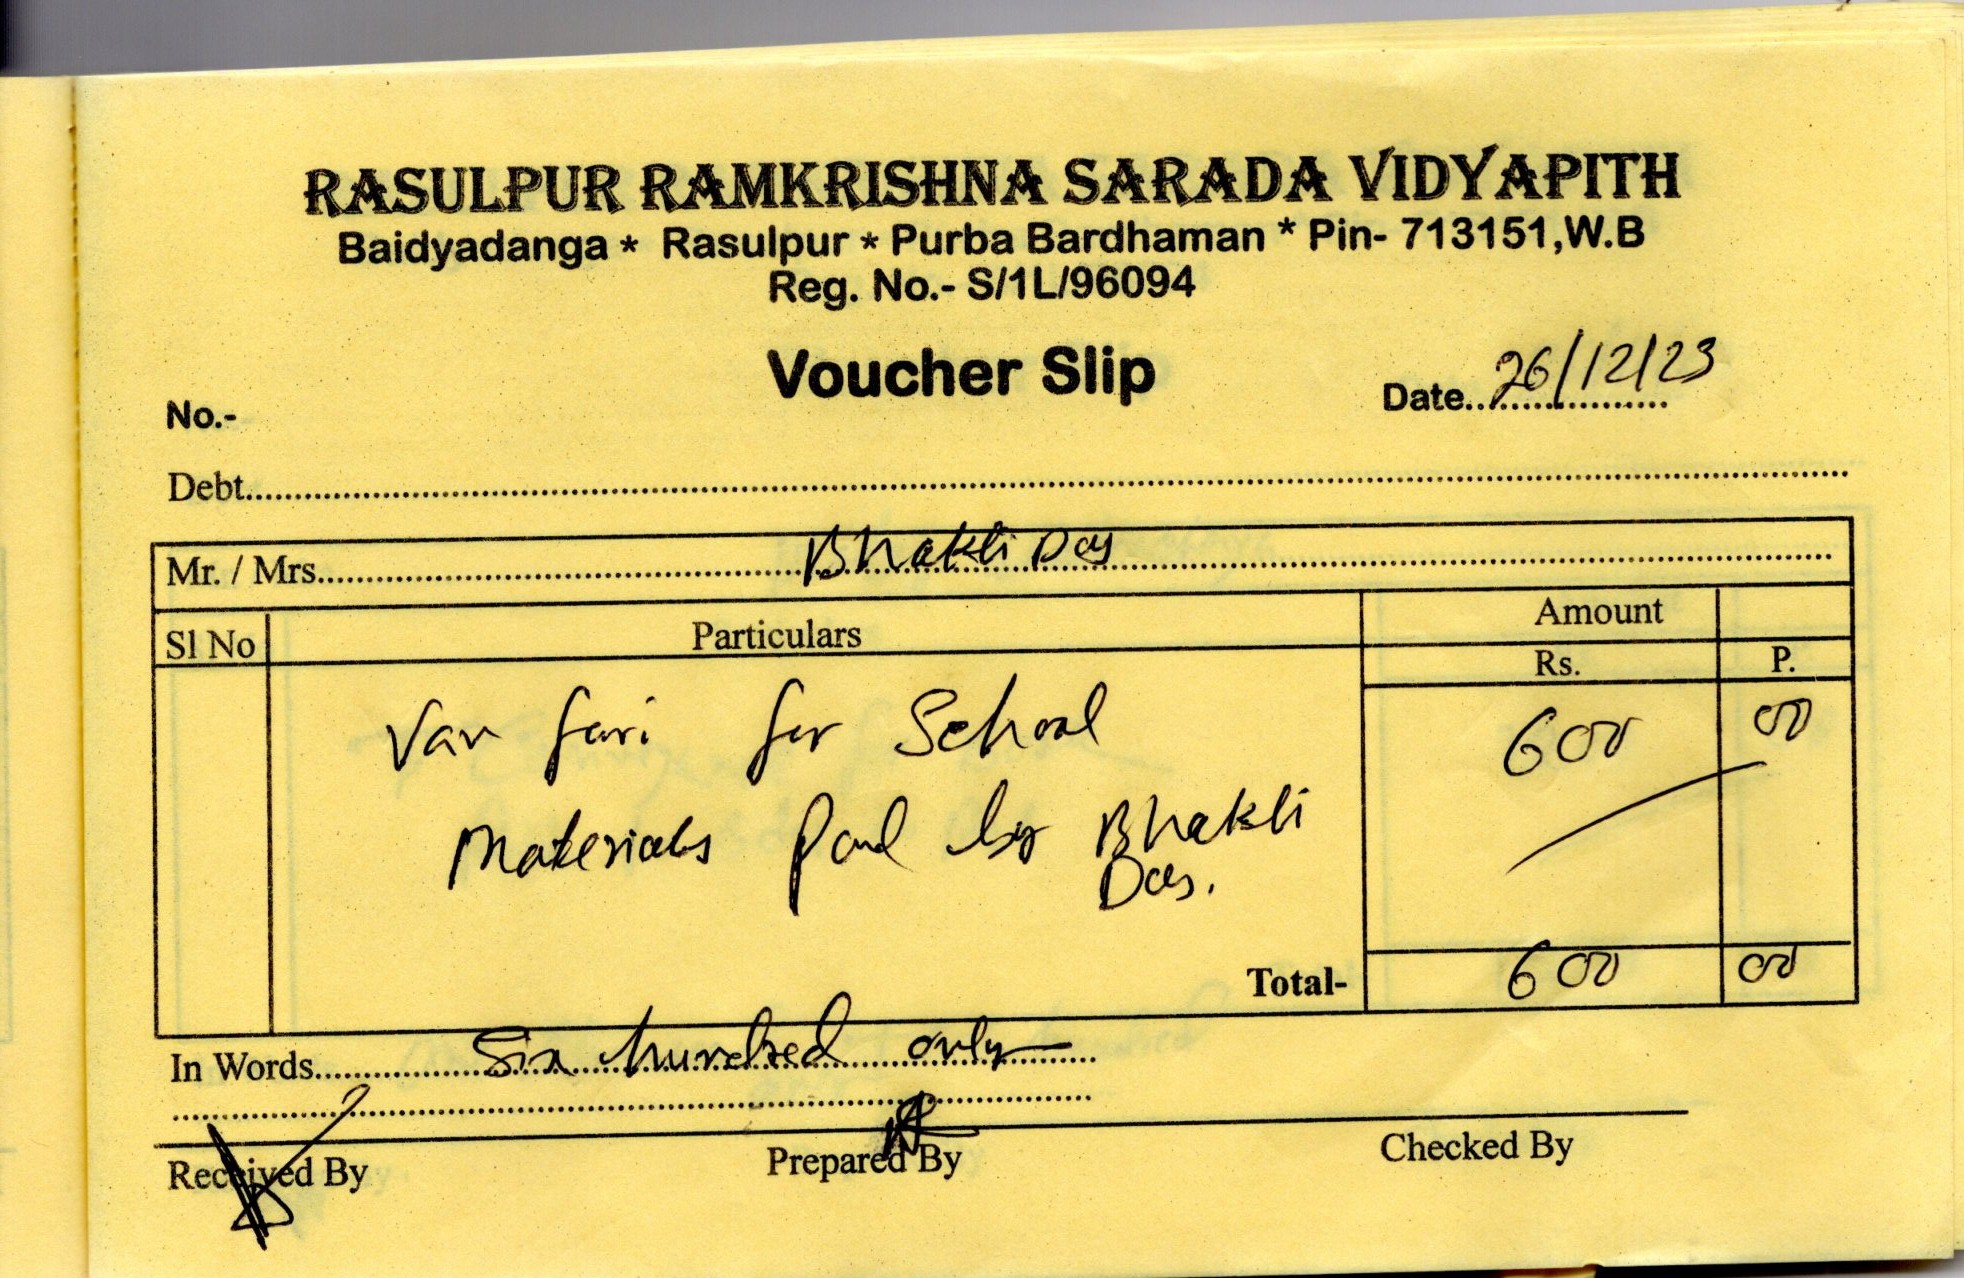 RASULPUR RAMKRISHNA SARADA VIDYAPITH
Baidyadanga * Rasulpur * Purba Bardhaman * Pin- 713151,W.B
Reg. No.- S/1L/96094
Voucher Slip
No.-
Date.. 26/12/23
Debt
Mr. / Mrs. Bhakti Das
Sl No Particulars Amount
Rs. P.
Van fari for School 600 00
Materials Paid by Bhakti
Das.
Total- 600 00
In Words Six hundred only
Received By Prepared By Checked By